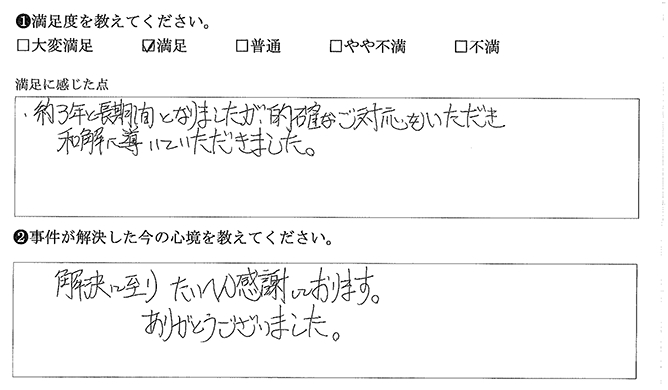 ❶満足度を教えてください。
□大変満足 ☑満足 □普通 □やや不満 □不満
満足に感じた点
・約3年と長期間となりましたが、的確なご対応をいただき
和解に導いていただきました。
❷事件が解決した今の心境を教えてください。
解決に至り たいへん感謝しております。
ありがとうございました。